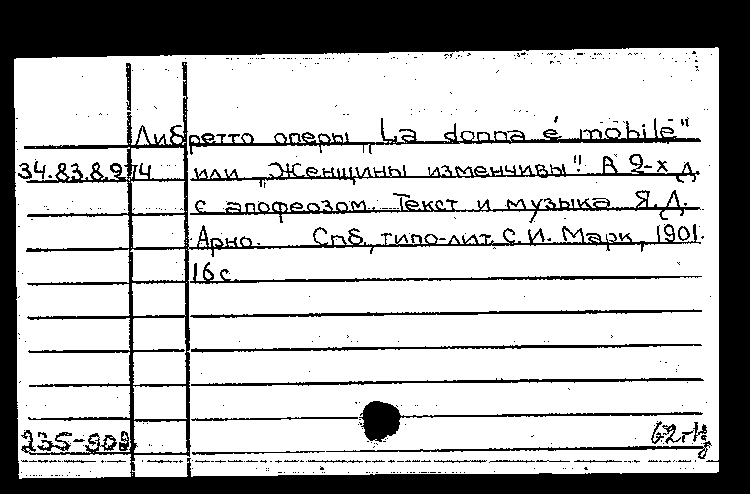 Либретто оперы „La donna é mobile"
34.83.8.974 или „Женщины изменчивы". А 2-х д.
с апофеозом. Текст и музыка Я.Д.
Арно. Спб, типо-лит. С.И. Марк, 1901.
16 с.
235-902